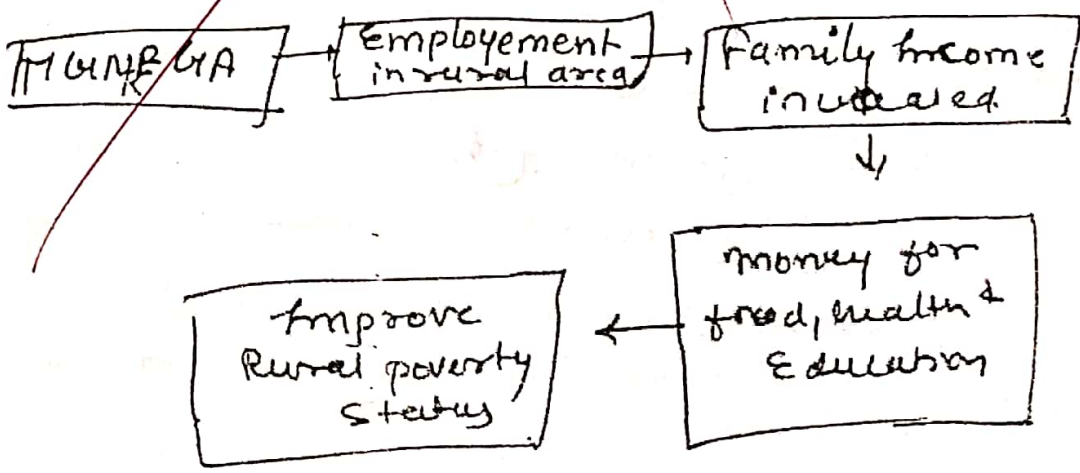 MGNREGA
Employement
in rural area
Family Income
increased
money for
food, health &
Education
Improve
Rural poverty
Status